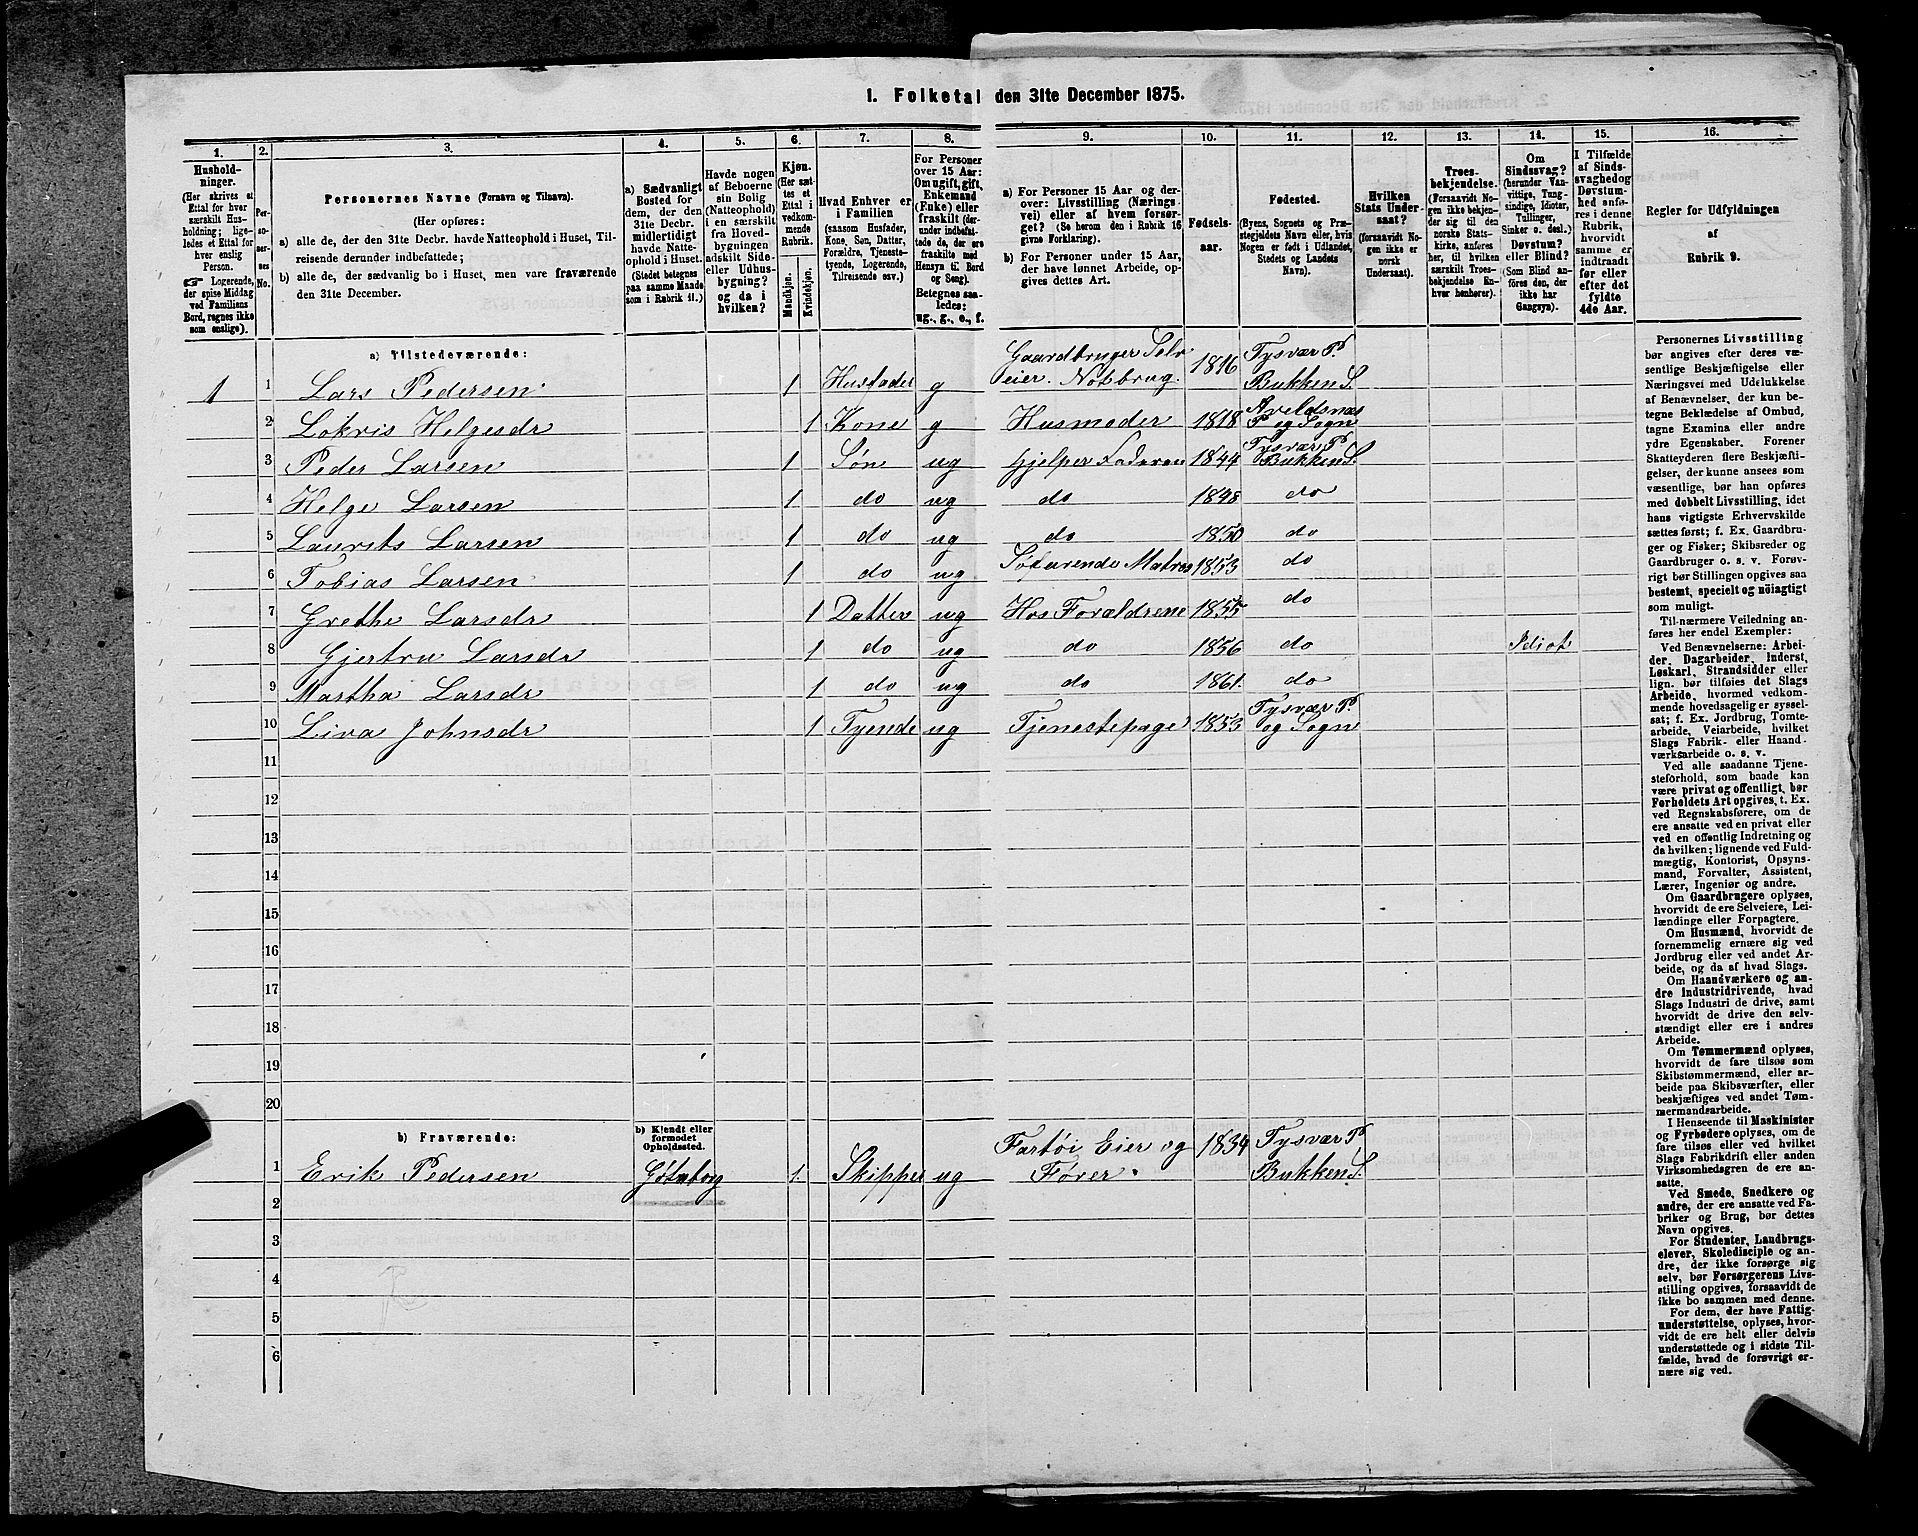 1. Folketal den 31te December 1875.
1. 2. 3. 4. 5. 6. 7. 8. 9. 10. 11. 12. 13. 14. 15. 16.
Hushold-
ninger.
(Her skrives et
Ettal for hver
særskilt Hus-
holdning; lige-
ledes et Ettal for
hver enslig
Person.
☞ Logerende,
der spise Middag
ved Familiens
Bord, regnes ikke
som enslige).
Per-
so-
ner-
nes
No.
Personernes Navne (Fornavn og Tilnavn).
(Her opføres:
a) alle de, der den 31te Decbr. havde Natteophold i Huset, Til-
reisende derunder indbefattede;
b) alle de, der sædvanlig bo i Huset, men vare fraværende
den 31te December.
a) Sædvanligt
Bosted for
dem, der den
31te Decbr.
midlertidigt
havde Natte-
ophold i Huset.
(Stedet betegnes
paa samme Maade
som i Rubrik 11.)
Havde nogen
af Beboerne
sin Bolig
(Natteophold)
i en særskilt
fra Hoved-
bygningen
adskilt Side-
eller Udhus-
bygning?
og da i
hvilken?
Kjøn.
(Her sæt-
tes et
Ettal i
vedkom-
mende
Rubrik.
Mandkjøn.
Kvindekjøn.
Hvad Enhver er
i Familien
(saasom Husfader,
Kone, Søn, Datter,
Forældre, Tjeneste-
tyende, Logerende,
Tilreisende osv.)
For Personer
over 15 Aar:
Om ugift, gift,
Enkemand
(Enke) eller
fraskilt (der-
under indbefat-
tede de, der ere
fraskilte med
Hensyn til Bord
og Seng).
Betegnes saa-
ledes:
ug., g., e., f.
a) For Personer 15 Aar og der-
over: Livsstilling (Nærings-
vei) eller af hvem forsør-
get? (Se herom den i Rubrik 16
givne Forklaring).
b) For Personer under 15 Aar,
der have lønnet Arbeide, op-
gives dettes Art.
Fødsels-
aar.
Fødested.
(Byens, Sognets og Præ-
stegjeldets Navn eller, hvis
Nogen er født i Udlandet,
Stedets og Landets
Navn).
Hvilken
Stats Under-
saat?
(forsaavidt No-
gen ikke er
norsk
Undersaat).
Troes-
bekjendelse.
(Forsaavidt No-
gen ikke bekjen-
der sig til den
norske Stats-
kirke, anføres
her, til hvilken
særskilt Troes-
bekjendelse En-
hver henhører).
Om
Sindssvag?
(herunder Van-
vittige, Tung-
sindige, Idioter,
Tullinger,
Sinker o. desl.)
Døvstum?
eller Blind?
(Som Blind an-
føres den, der
ikke har
Gangsyn).
I Tilfælde
af Sinds-
svaghed og
Døvstum-
hed anfø-
res i denne
Rubrik,
hvorvidt
samme er
indtraadt
før eller
efter det
fyldte
4de Aar.
Regler for Udfyldningen
af
Rubrik 9.
a) Tilstedeværende:
1 1 Lars Pedersen 1 Husfader g Gaardbruger Selv
eier. Notbrug. 1816 Tysvær P.
Bukken S.
2 Lokris Helgesdr 1 Kone g Husmoder 1818 Aveldsnæs
P. og Sogn
3 Peder Larsen 1 Søn ug Hjelper Faderen 1844 Tysvær P.
Bukken S.
4 Helge Larsen 1 do ug do 1848 do
5 Laurits Larsen 1 do ug do 1850 do
6 Tobias Larsen 1 do ug Søfarende Matros 1853 do
7 Grethe Larsdr 1 Datter ug Hos Forældrene 1855 do
8 Gjertru Larsdr 1 do ug do 1856 do Idiot
9 Martha Larsdr 1 do ug do 1861. do
10 Liva Johnsdr 1 Tyende ug Tjenestepage 1853 Tysvær P.
og Sogn
11
12
13
14
15
16
17
18
19
20
b) Fraværende:
b) Kjendt eller
formodet
Opholdssted.
1 Erik Pedersen Gøteborg 1. Skipper ug Fartøi Eier og
Fører. 1834 Tysvær P.
Bukken S.
2
3
4
5
6
Personernes Livsstilling
bør angives efter deres væ-
sentlige Beskjæftigelse eller
Næringsvei med Udelukkelse
af Benævnelser, der kun be-
tegne Beklædelse af Ombud,
tagne Examina eller andre
ydre Egenskaber. Forener
Skatteyderen flere Beskjæfti-
gelser, der kunne ansees som
væsentlige, bør han opføres
med dobbelt Livsstilling, idet
hans vigtigste Erhvervskilde
sættes først; f. Ex. Gaardbru-
ger og Fisker; Skibsreder og
Gaardbruger o. s. v. Forøv-
rigt bør Stillingen opgives saa
bestemt, specielt og nöiagtigt
som muligt.
Til nærmere Veiledning an-
føres her endel Exempler:
Ved Benævnelserne: Arbei-
der, Dagarbeider, Inderst,
Løskarl, Strandsidder eller
lign. bør tilføies det Slags
Arbeide, hvormed vedkom-
mende hovedsagelig er syssel-
sat; f. Ex. Jordbrug, Tomte-
arbeide, Veiarbeide, hvilket
Slags Fabrik- eller Haand-
værksarbeide o. s. v.
Ved alle saadanne Tjene-
steforhold, som baade kan
være privat og offentligt, bør
Forholdets Art opgives, t. Ex.
ved Regnskabsførere, om de
ere ansatte ved en privat eller
ved en offentlig Indretning og
da hvilken; lignende ved Fuld-
mægtig, Kontorist, Opsyns-
mand, Forvalter, Assistent,
Lærer, Ingeniør og andre.
Om Gaardbrugere oplyses,
hvorvidt de ere Selveiere, Lei-
lændinge eller Forpagtere.
Om Husmænd, hvorvidt de
fornemmelig ernære sig ved
Jordbrug eller ved andet Ar-
beide, og da af hvad Slags.
Om Haandværkere og an-
dre Industridrivende, hvad
Slags Industri de drive, samt
hvorvidt de drive den selv-
stændigt eller ere i andres
Arbeide.
Om Tømmermænd oplyses,
hvorvidt de fare tilsøs som
Skibstømmermænd, eller ar-
beide paa Skibsværfter, eller
beskjæftiges ved andet Tøm-
mermandsarbeide.
I Henseende til Maskinister
og Fyrbødere oplyses, om de
fare tilsøs eller ved hvilket
Slags Fabrikdrift eller anden
Virksomhedsgren de ere an-
satte.
Ved Smede, Snedkere og
andre, der ere ansatte ved Fa-
briker og Brug, bør dettes
Navn opgives.
For Studenter, Landbrugs-
elever, Skoledisciple og an-
dre, der ikke forsørge sig
selv, bør Forsørgerens Livs-
stilling opgives, forsaavidt de
ikke bo sammen med denne.
For dem, der have Fattig-
understøttelse, oplyses, hvor-
vidt de ere helt eller delvis
understøttede og i sidste Til-
fælde, hvad de forøvrigt er-
nære sig ved.